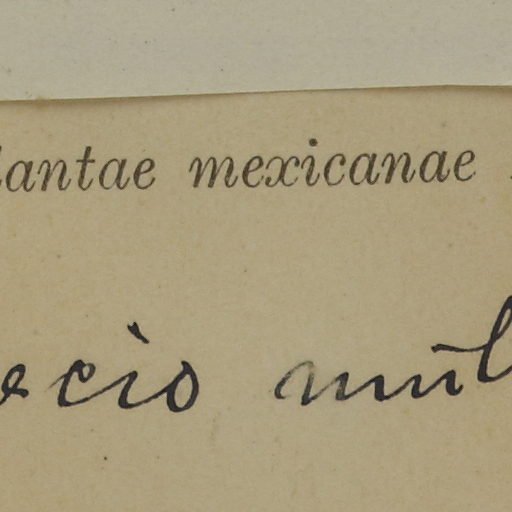 lantae mexicanae
ecio mul